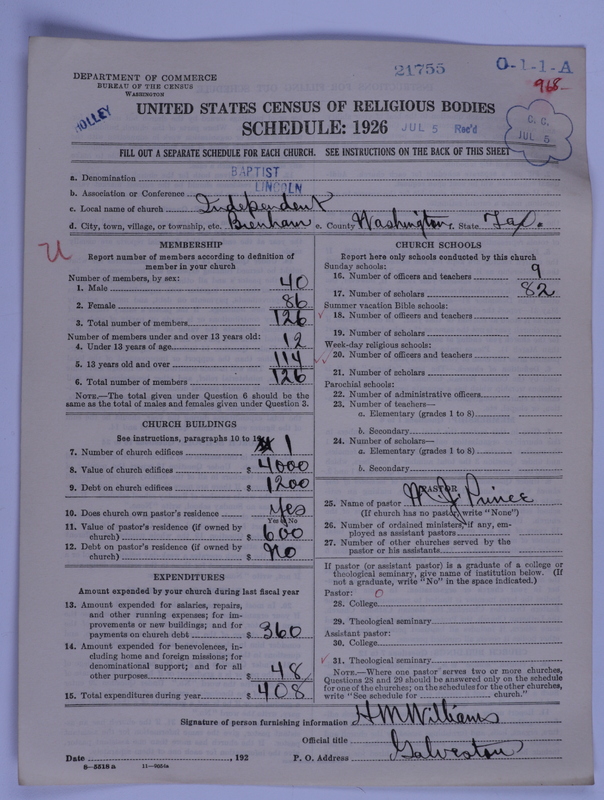 21755
O-1-1-A
968-
DEPARTMENT OF COMMERCE
BUREAU OF THE CENSUS
WASHINGTON
HOLLEY
UNITED STATES CENSUS OF RELIGIOUS BODIES
SCHEDULE: 1926
JUL 5 Rec'd
C. C.
JUL 5
FILL OUT A SEPARATE SCHEDULE FOR EACH CHURCH. SEE INSTRUCTIONS ON THE BACK OF THIS SHEET
a. Denomination BAPTIST
b. Association or Conference LINCOLN
c. Local name of church Independent
d. City, town, village, or township, etc. Brenham e. County Washington f. State Tax.
U
MEMBERSHIP
Report number of members according to definition of
member in your church
Number of members, by sex:
1. Male 40
2. Female 86
3. Total number of members 126
Number of members under and over 13 years old:
4. Under 13 years of age 12
5. 13 years old and over 114
6. Total number of members 126
NOTE.—The total given under Question 6 should be the
same as the total of males and females given under Question 3.
CHURCH BUILDINGS
See instructions, paragraphs 10 to
7. Number of church edifices 1
8. Value of church edifices $ 4000
9. Debt on church edifices $ 1200
10. Does church own pastor's residence Yes
Yes or No
11. Value of pastor's residence (if owned by
church) $ 600
12. Debt on pastor's residence (if owned by
church) $ no
EXPENDITURES
Amount expended by your church during last fiscal year
13. Amount expended for salaries, repairs,
and other running expenses; for im-
provements or new buildings; and for
payments on church debt $ 360
14. Amount expended for benevolences, in-
cluding home and foreign missions; for
denominational support; and for all
other purposes $ 48
15. Total expenditures during year $ 408
CHURCH SCHOOLS
Report here only schools conducted by this church
Sunday schools:
16. Number of officers and teachers 9
17. Number of scholars 82
Summer vacation Bible schools:
18. Number of officers and teachers
19. Number of scholars
Week-day religious schools:
20. Number of officers and teachers
21. Number of scholars
Parochial schools:
22. Number of administrative officers
23. Number of teachers—
a. Elementary (grades 1 to 8)
b. Secondary
24. Number of scholars—
a. Elementary (grades 1 to 8)
b. Secondary
PASTOR
25. Name of pastor M. J. Prince
(If church has no pastor, write "None")
26. Number of ordained ministers, if any, em-
ployed as assistant pastors
27. Number of other churches served by the
pastor or his assistants
If pastor (or assistant pastor) is a graduate of a college or
theological seminary, give name of institution below. (If
not a graduate, write "No" in the space indicated.)
Pastor: 0
28. College
29. Theological seminary
Assistant pastor:
30. College
31. Theological seminary
NOTE.—Where one pastor serves two or more churches,
Questions 28 and 29 should be answered only on the schedule
for one of the churches; on the schedules for the other churches,
write "See schedule for church."
Signature of person furnishing information H M Williams
Official title
Date , 192 P. O. Address Galveston
8-5518a 11-9034a